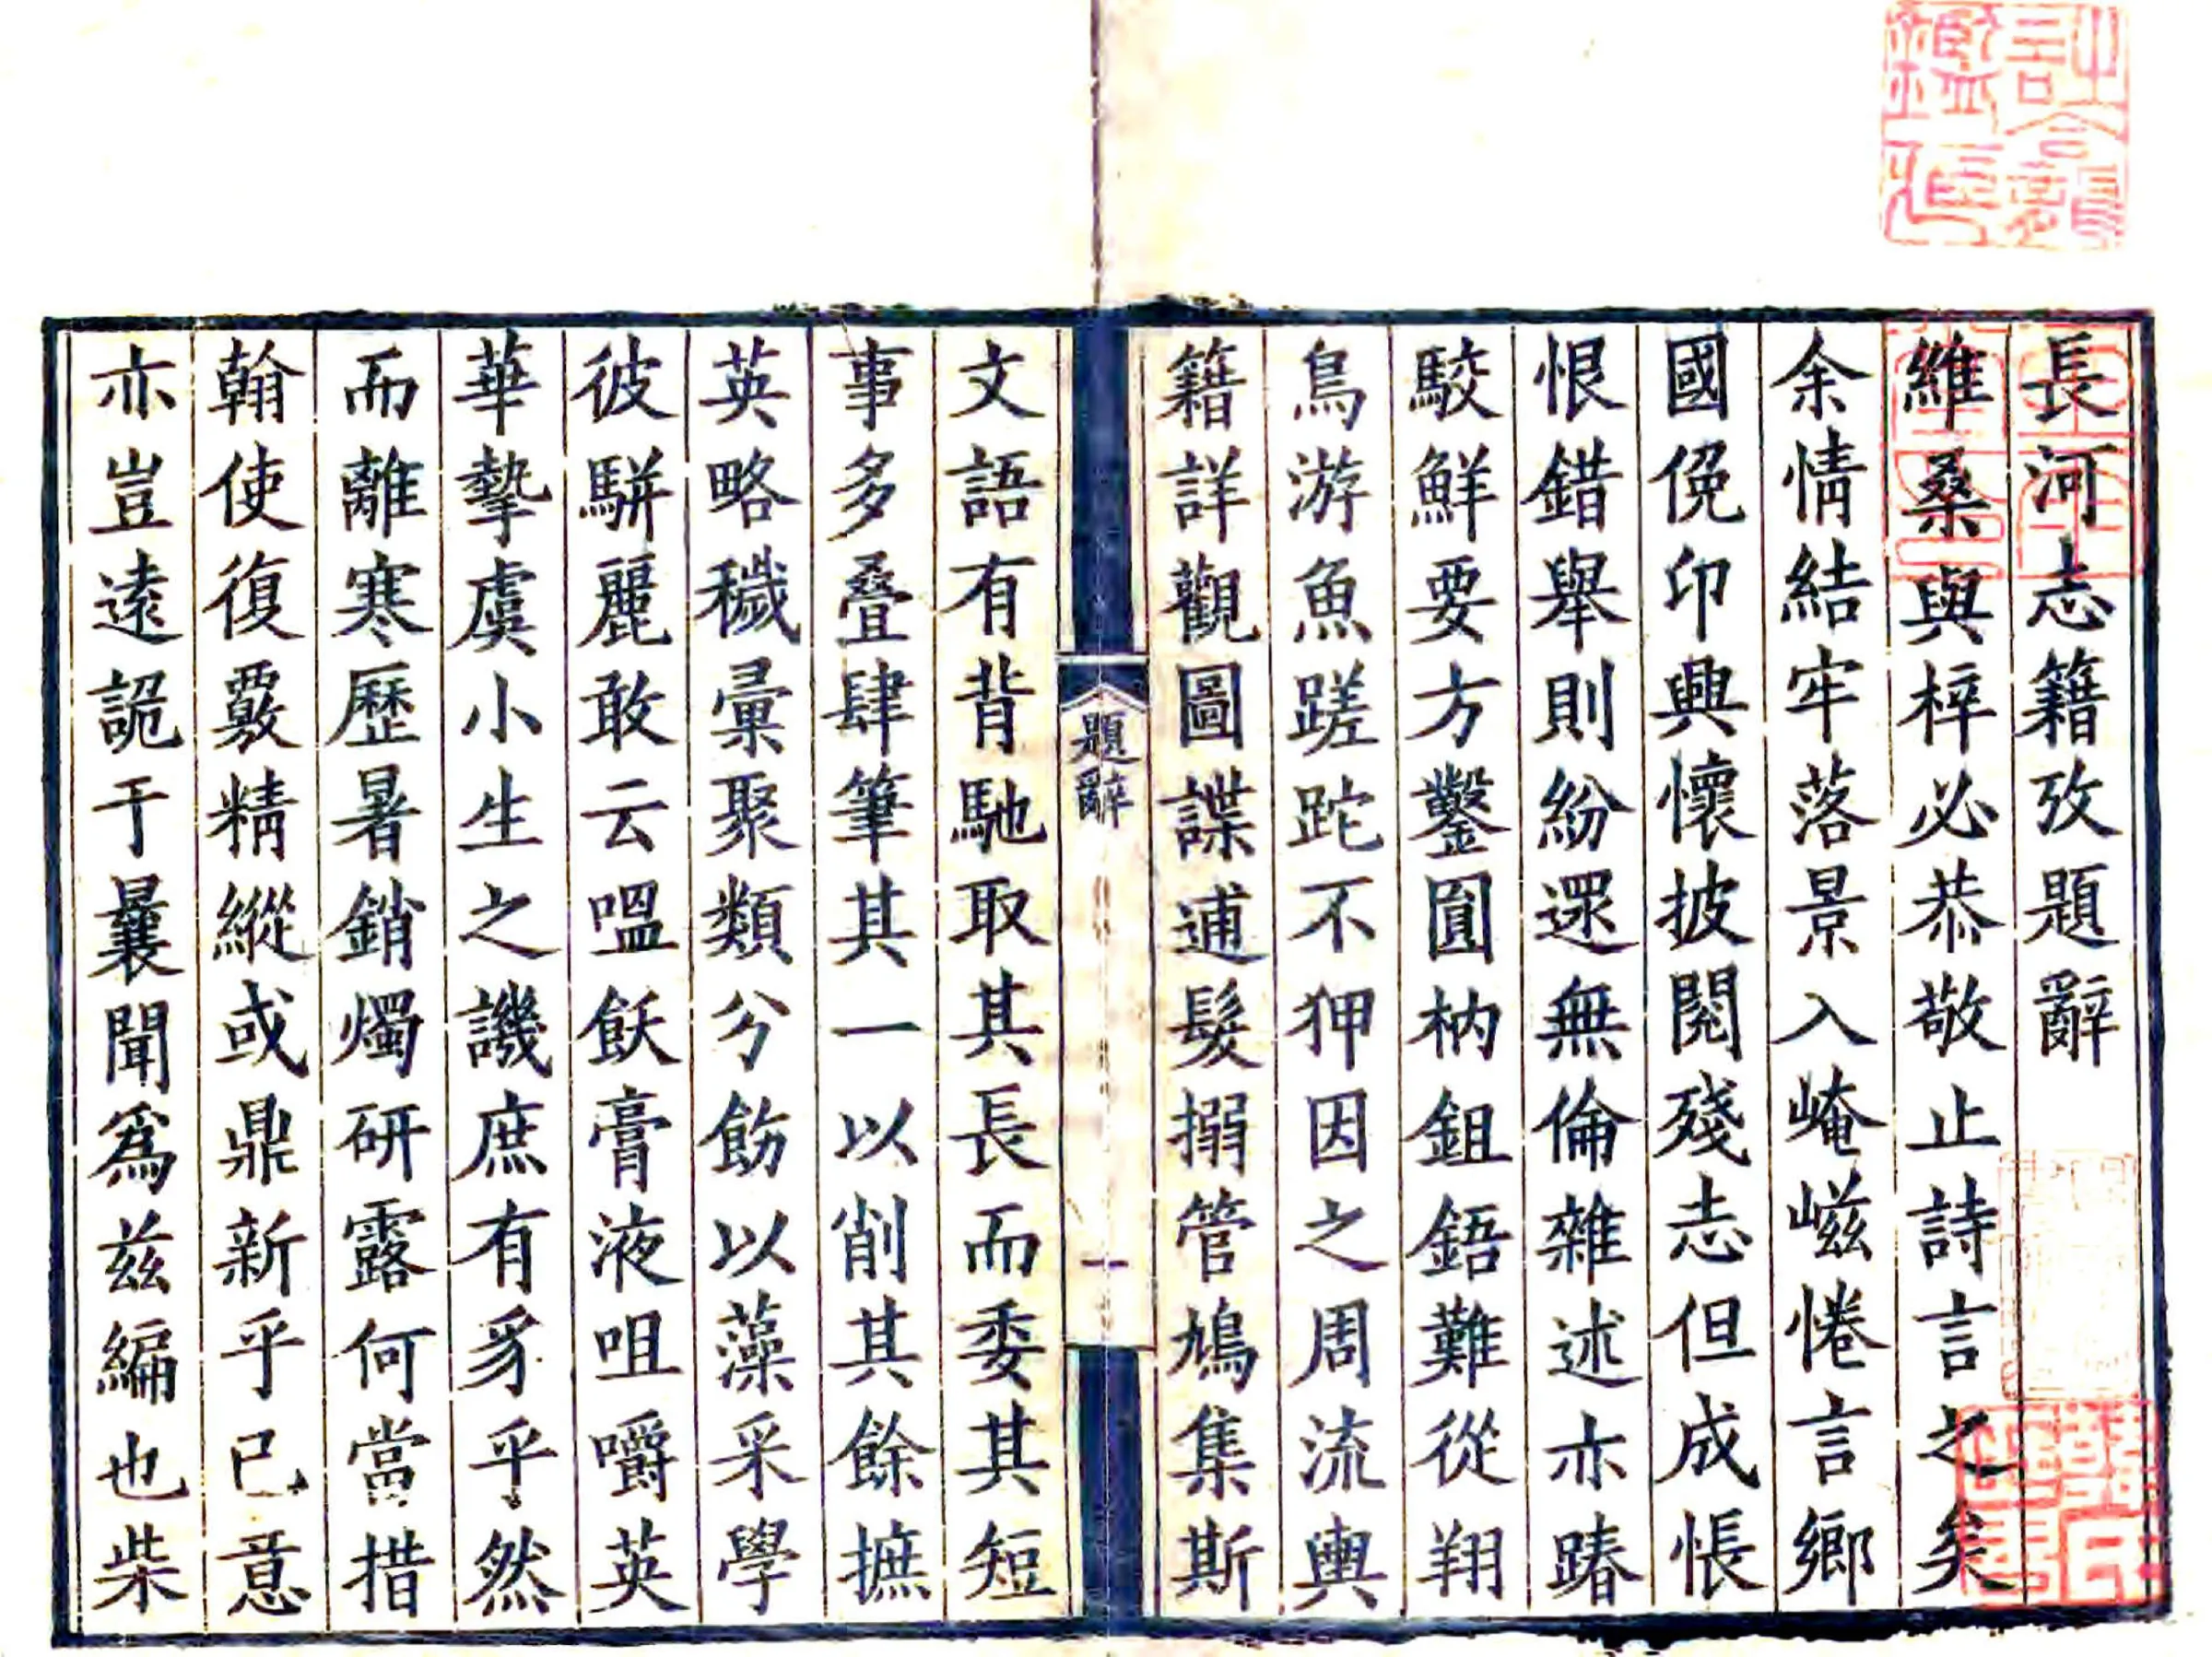 長河志籍攷題辭
維桑與梓必恭敬止詩言之矣
余情結牢落景入崦嵫惓言鄉
國俛卬興懷披閱殘志但成悵
恨錯舉則紛還無倫雜述亦踳
駮鮮要方鑿圓枘鉏鋙難從翔
鳥游魚蹉跎不狎因之周流輿
籍詳觀圖諜逋髮搦管鳩集斯
題辭
一
文語有背馳取其長而委其短
事多疊肆筆其一以削其餘摭
英略穢彙聚類分飭以藻采學
彼駢麗敢云嗢飫膏液咀嚼英
華摯虞小生之譏庶有豸乎然
而離寒歷暑銷燭研露何當措
翰使復覈精縱或鼎新乎已意
亦豈遠詭于曩聞為茲編也柴